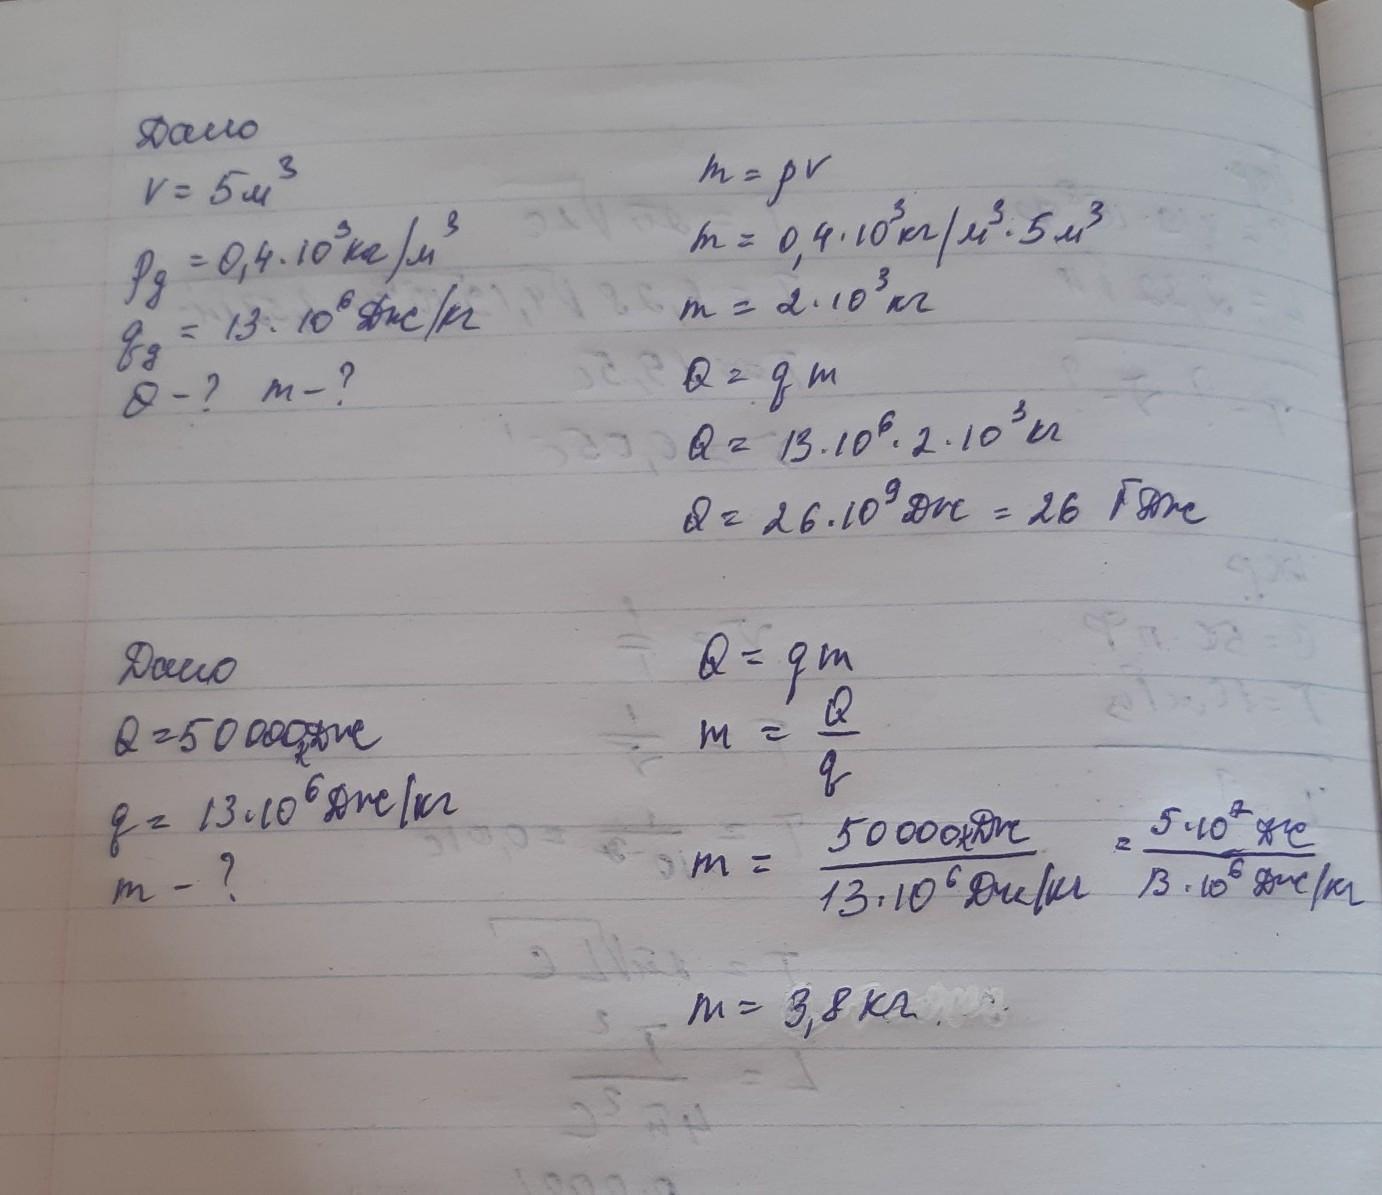 Дано
V = 5 м³
ρg = 0,4·10³ кг/м³
qg = 13·10⁶ Дж/кг
Q - ? m - ?
m = ρV
m = 0,4·10³ кг/м³·5 м³
m = 2·10³ кг
Q = qm
Q = 13·10⁶·2·10³ кг
Q = 26·10⁹ Дж = 26 ГДж
Дано
Q = 50000кДж
q = 13·10⁶ Дж/кг
m - ?
Q = qm
m = Q/q
m = 50000кДж / 13·10⁶ Дж/кг = 5·10⁷ Дж / 13·10⁶ Дж/кг
m = 3,8 кг